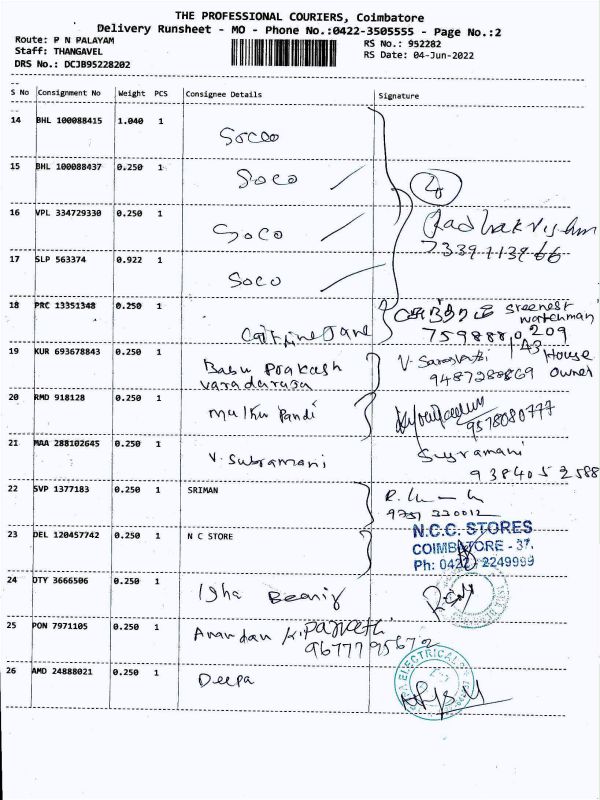 THE PROFESSIONAL COURIERS, Coimbatore
Delivery Runsheet - MO - Phone No.:0422-3505555 - Page No.:2
Route: P N PALAYAM
Staff: THANGAVEL
DRS No.: DCJB95228202
RS No.: 952282
RS Date: 04-Jun-2022
S No Consignment No Weight PCS Consignee Details Signature
14 BHL 100088415 1.040 1 Socoo
15 BHL 100088437 0.250 1 Soco
16 VPL 334729330 0.250 1 Soco
Radhakrishnan
17 SLP 563374 0.922 1 Soco
18 PRC 13351348 0.250 1 Cathrine Jane
sreenest
watchman
7598880209
19 KUR 693678843 0.250 1 Babu Prakash
varadaraja
V. Saraswathi A3 House
9487280869 Owner
20 RMD 918128 0.250 1 Muthu Pandi
9578080777
21 MAA 288102645 0.250 1 V. Subramani
9384052588
22 SVP 1377183 0.250 1 SRIMAN
23 DEL 120457742 0.250 1 N C STORE
N.C.C. STORES
COIMBATORE - 37.
Ph: 0422 - 2249999
24 DTY 3666506 0.250 1 Isha
25 PON 7971105 0.250 1 Anandan K.
9677795672
26 AMD 24888021 0.250 1 Deepa
ELECTRICAL